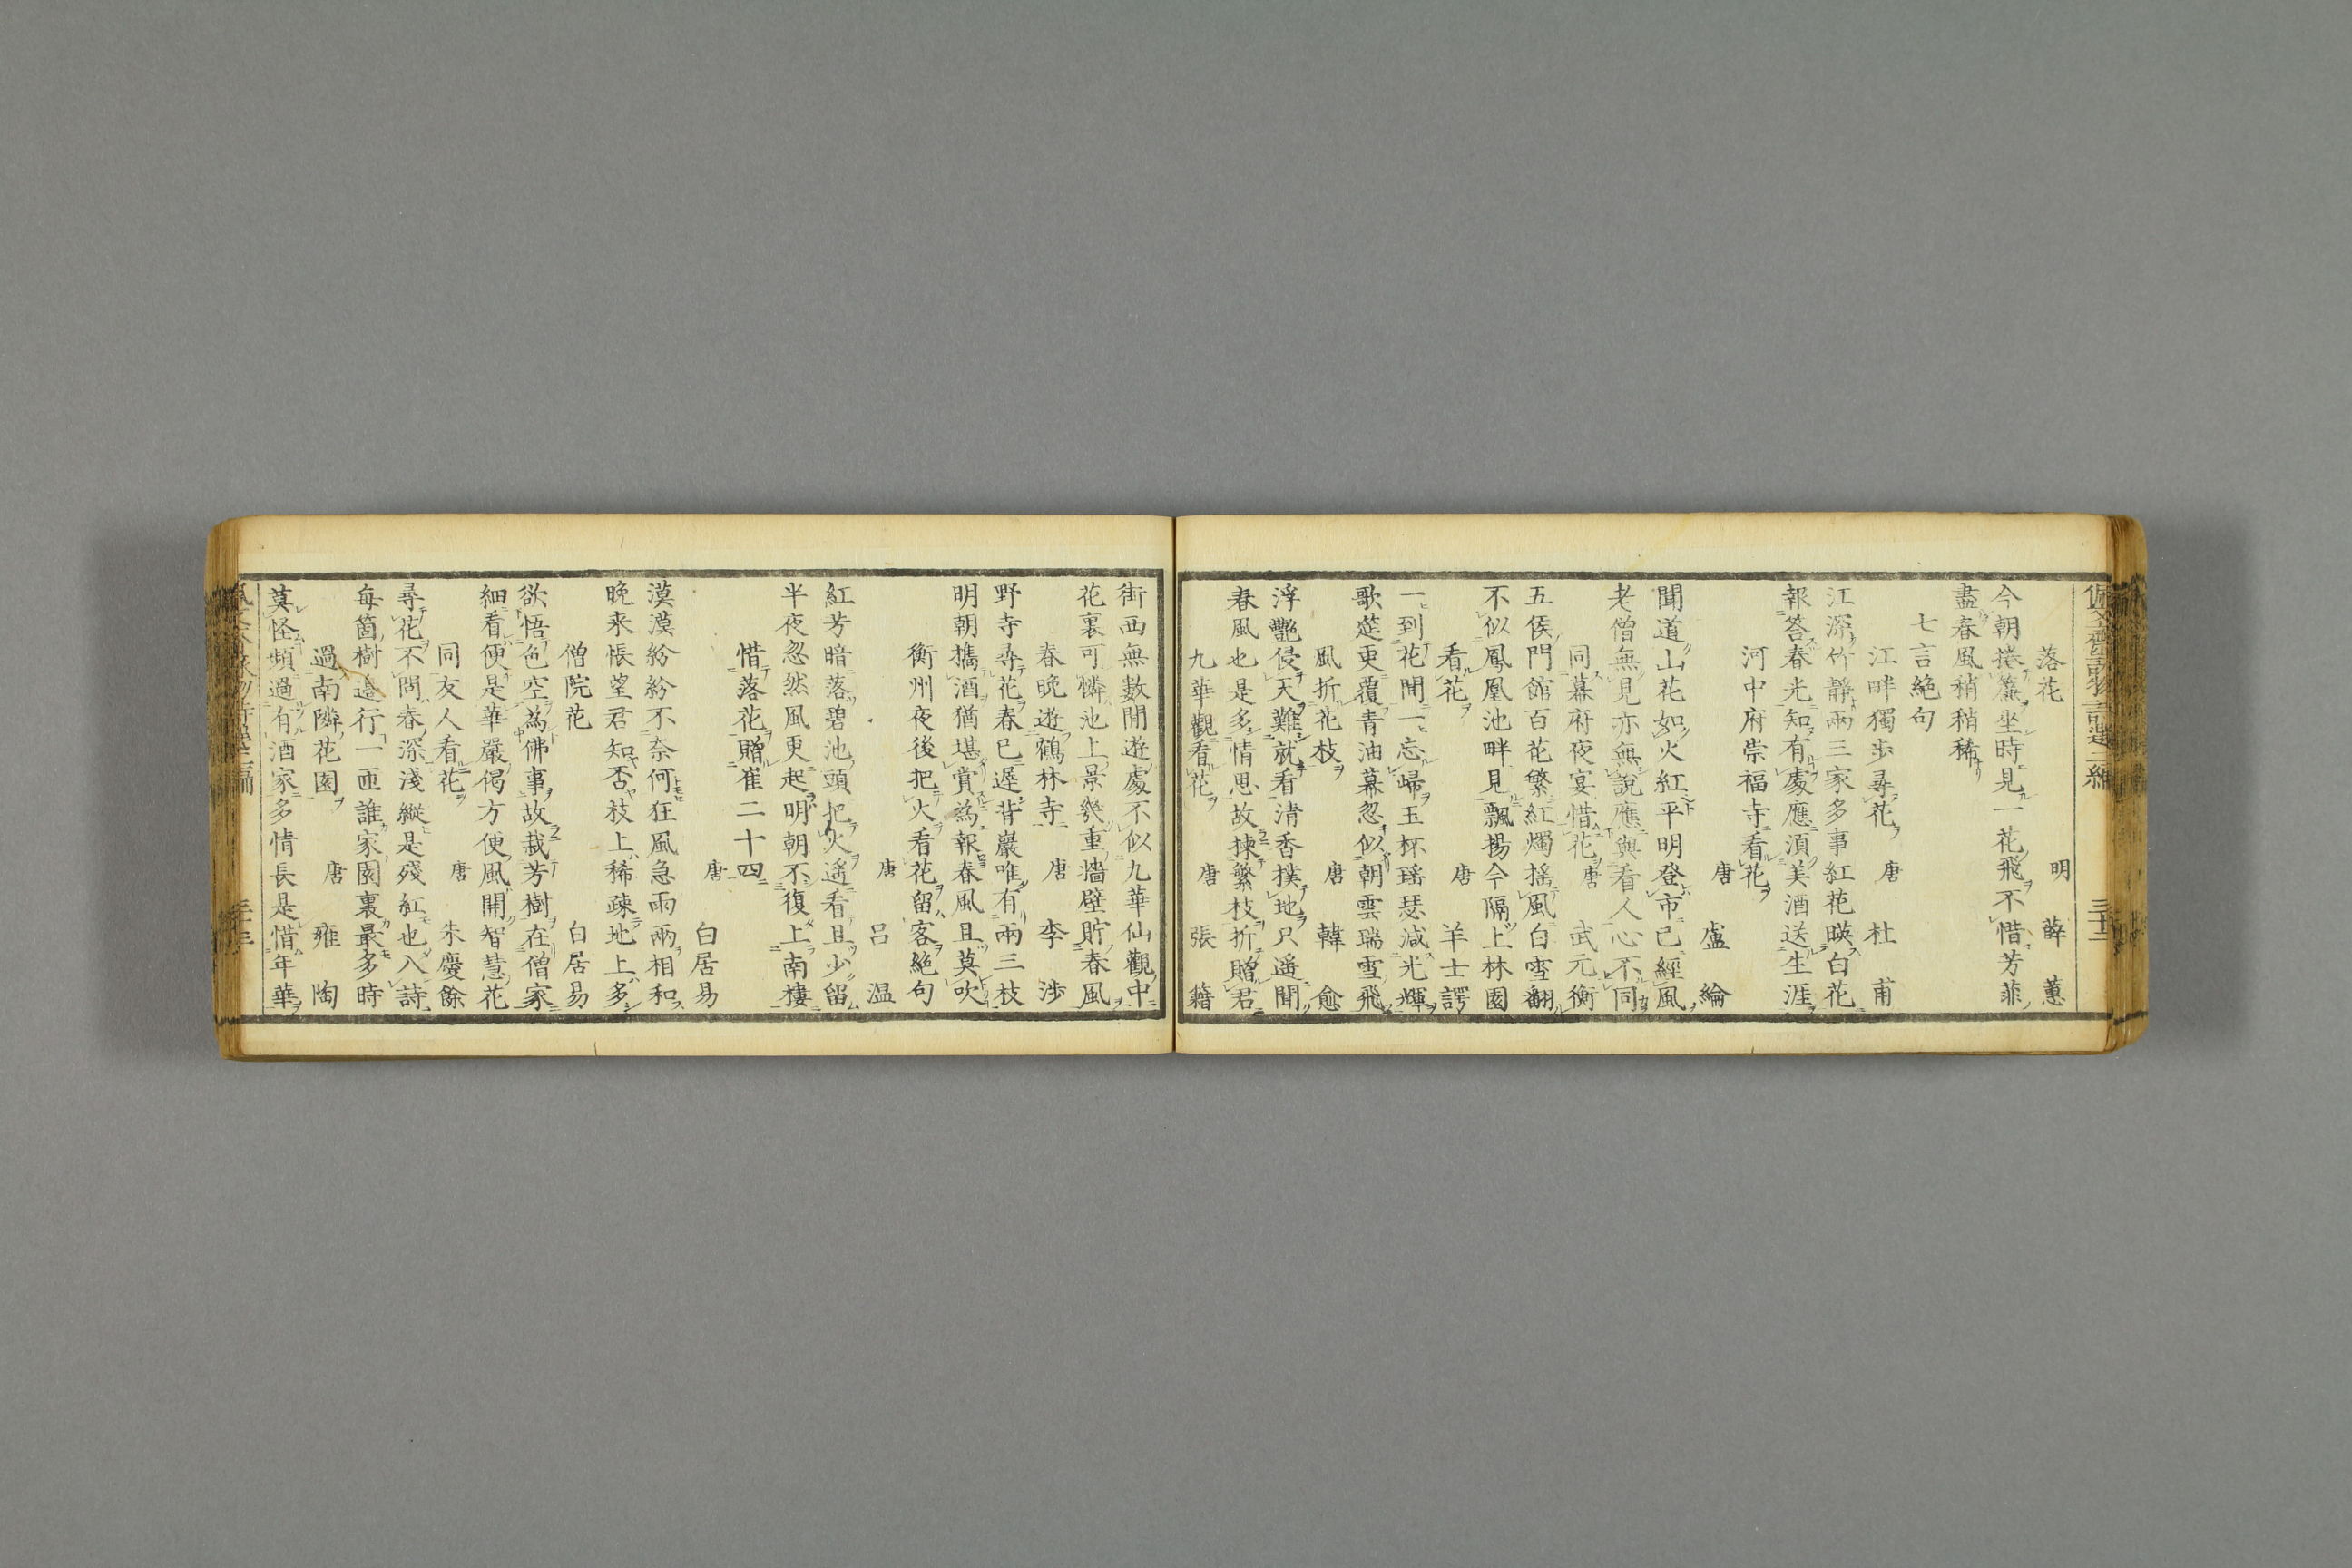 落花　明　薛蕙
今朝捲簾坐時見一花飛不惜芳菲
盡春風稍稍稀
七言絶句
江畔獨歩尋花　唐　杜甫
江深竹靜兩三家多事紅花暎白花
報答春光知有處應須美酒送生涯
河中府崇福寺看花
唐　盧綸
聞道山花如火紅平明登市已經風
老僧無見亦無說應與看人心不同
同幕府夜宴惜花　唐　武元衡
五侯門館百花繁紅燭摇風白雪翻
不似鳳凰池畔見飄揚今隔上林園
看花　唐　羊士諤
一到花間一忘歸玉杯瑶瑟減光輝
歌筵更覆青油幕忽似朝雲瑞雪飛
風折花枝　唐　韓愈
浮艷侵天難就看清香撲地只遥聞
春風也是多情思故揀繁枝折贈君
九華觀看花　唐　張籍
街西無數閒遊處不似九華仙觀中
花裏可憐池上景幾重墻壁貯春風
春晩遊鶴林寺　唐　李渉
野寺尋花春已遲背巖唯有兩三枝
明朝携酒猶堪賞為報春風且莫吹
衡州夜後把火看花留客絶句
唐　呂温
紅芳暗落碧池頭把火遥看且少留
半夜忽然風更起明朝不復上南樓
惜落花贈崔二十四
唐　白居易
漠漠紛紛不奈何狂風急雨兩相和
晩来悵望君知否枝上稀疎地上多
僧院花　白居易
欲悟色空為佛事故栽芳樹在僧家
細看便是華嚴偈方便風開智慧花
同友人看花　唐　朱慶餘
尋花不問春深淺縱是殘紅也入詩
每箇樹邊行一匝誰家園裏最多時
過南隣花園　唐　雍陶
莫怪頻過有酒家多情長是惜年華